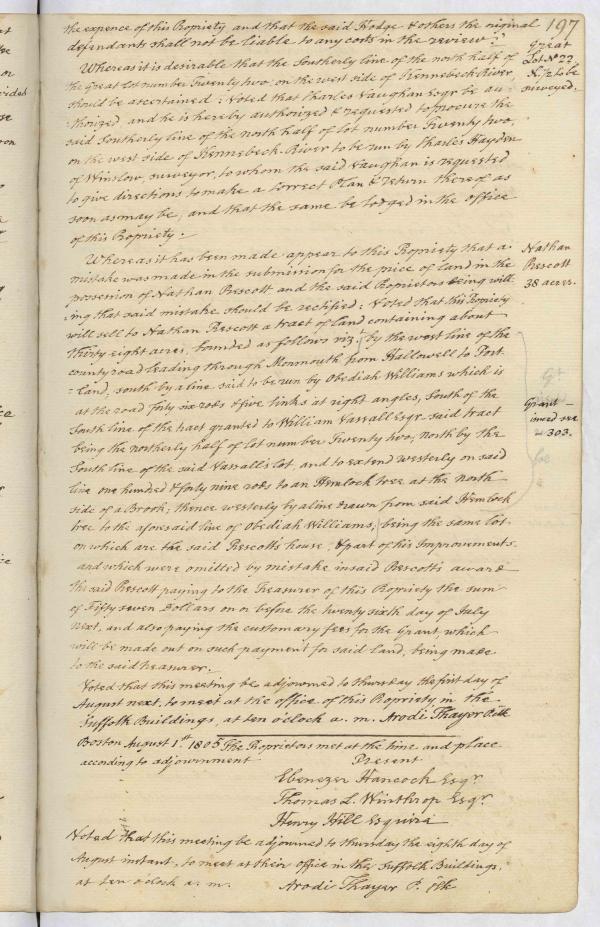 197
the expence of this Propriety and that the said Hodge & others the original
defendants shall not be liable to any costs in the review.
Great
Lot No 22
N. 1/2 to be
surveyed.
Whereas it is desirable that the Southerly line of the north half of
the great lot number Twenty two, on the west side of Kennebeck River,
should be ascertained: Voted that Charles Vaughan Esqr be au-
-thorized and he is hereby authorized & requested to procure the
said Southerly line of the north half of lot number Twenty two,
on the west side of Kennebeck River to be run by Charles Hayden
of Winslow, surveyor, to whom the said Vaughan is requested
to give directions to make a correct Plan & return thereof as
soon as may be, and that the same be lodged in the office
of this Propriety.
Nathan
Prescott
38 acres.
Whereas it has been made appear to this Propriety that a
mistake was made in the submission for the price of land in the
possession of Nathan Prescott and the said Proprietors being will-
-ing that said mistake should be rectified: Voted that this Propriety
will sell to Nathan Prescott a tract of land containing about
Thirty eight acres, bounded as follows viz: by the west line of the
county road leading through Monmouth from Hallowell to Port-
-land, south by a line said to be run by Obediah Williams which is
at the road forty six rods & five links at right angles, South of the
South line of the tract granted to William Vassall Esqr said tract
being the northerly half of lot number Twenty two; North by the
South line of the said Vassall's lot, and to extend westerly on said
line one hundred & forty nine rods to an Hemlock tree at the north
side of a Brook; thence westerly by a line drawn from said Hemlock
tree to the aforesaid line of Obediah Williams, being the same lot
on which are the said Prescott's house & part of his Improvements
and which were omitted by mistake in said Prescott's award
the said Prescott paying to the Treasurer of this Propriety the sum
of Fifty seven Dollars on or before the twenty sixth day of July
next, and also paying the customary fees for the Grant, which
will be made out on such payment for said land, being made
to the said treasurer.
Grant
see
303.
Voted that this meeting be adjourned to thursday the first day of
August next, to meet at the office of this Propriety in the
Suffolk Buildings, at ten o'clock a. m. Arodi Thayer P. Clk
Boston August 1st. 1805 The Proprietors met at the time and place
according to adjournment Present
Ebenezer Hancock Esqr.
Thomas L. Winthrop Esqr.
Henry Hill Esquire
Voted that this meeting be adjourned to thursday the eighth day of
August instant, to meet at their office in the Suffolk Buildings,
at ten o'clock a. m. Arodi Thayer P. Clk